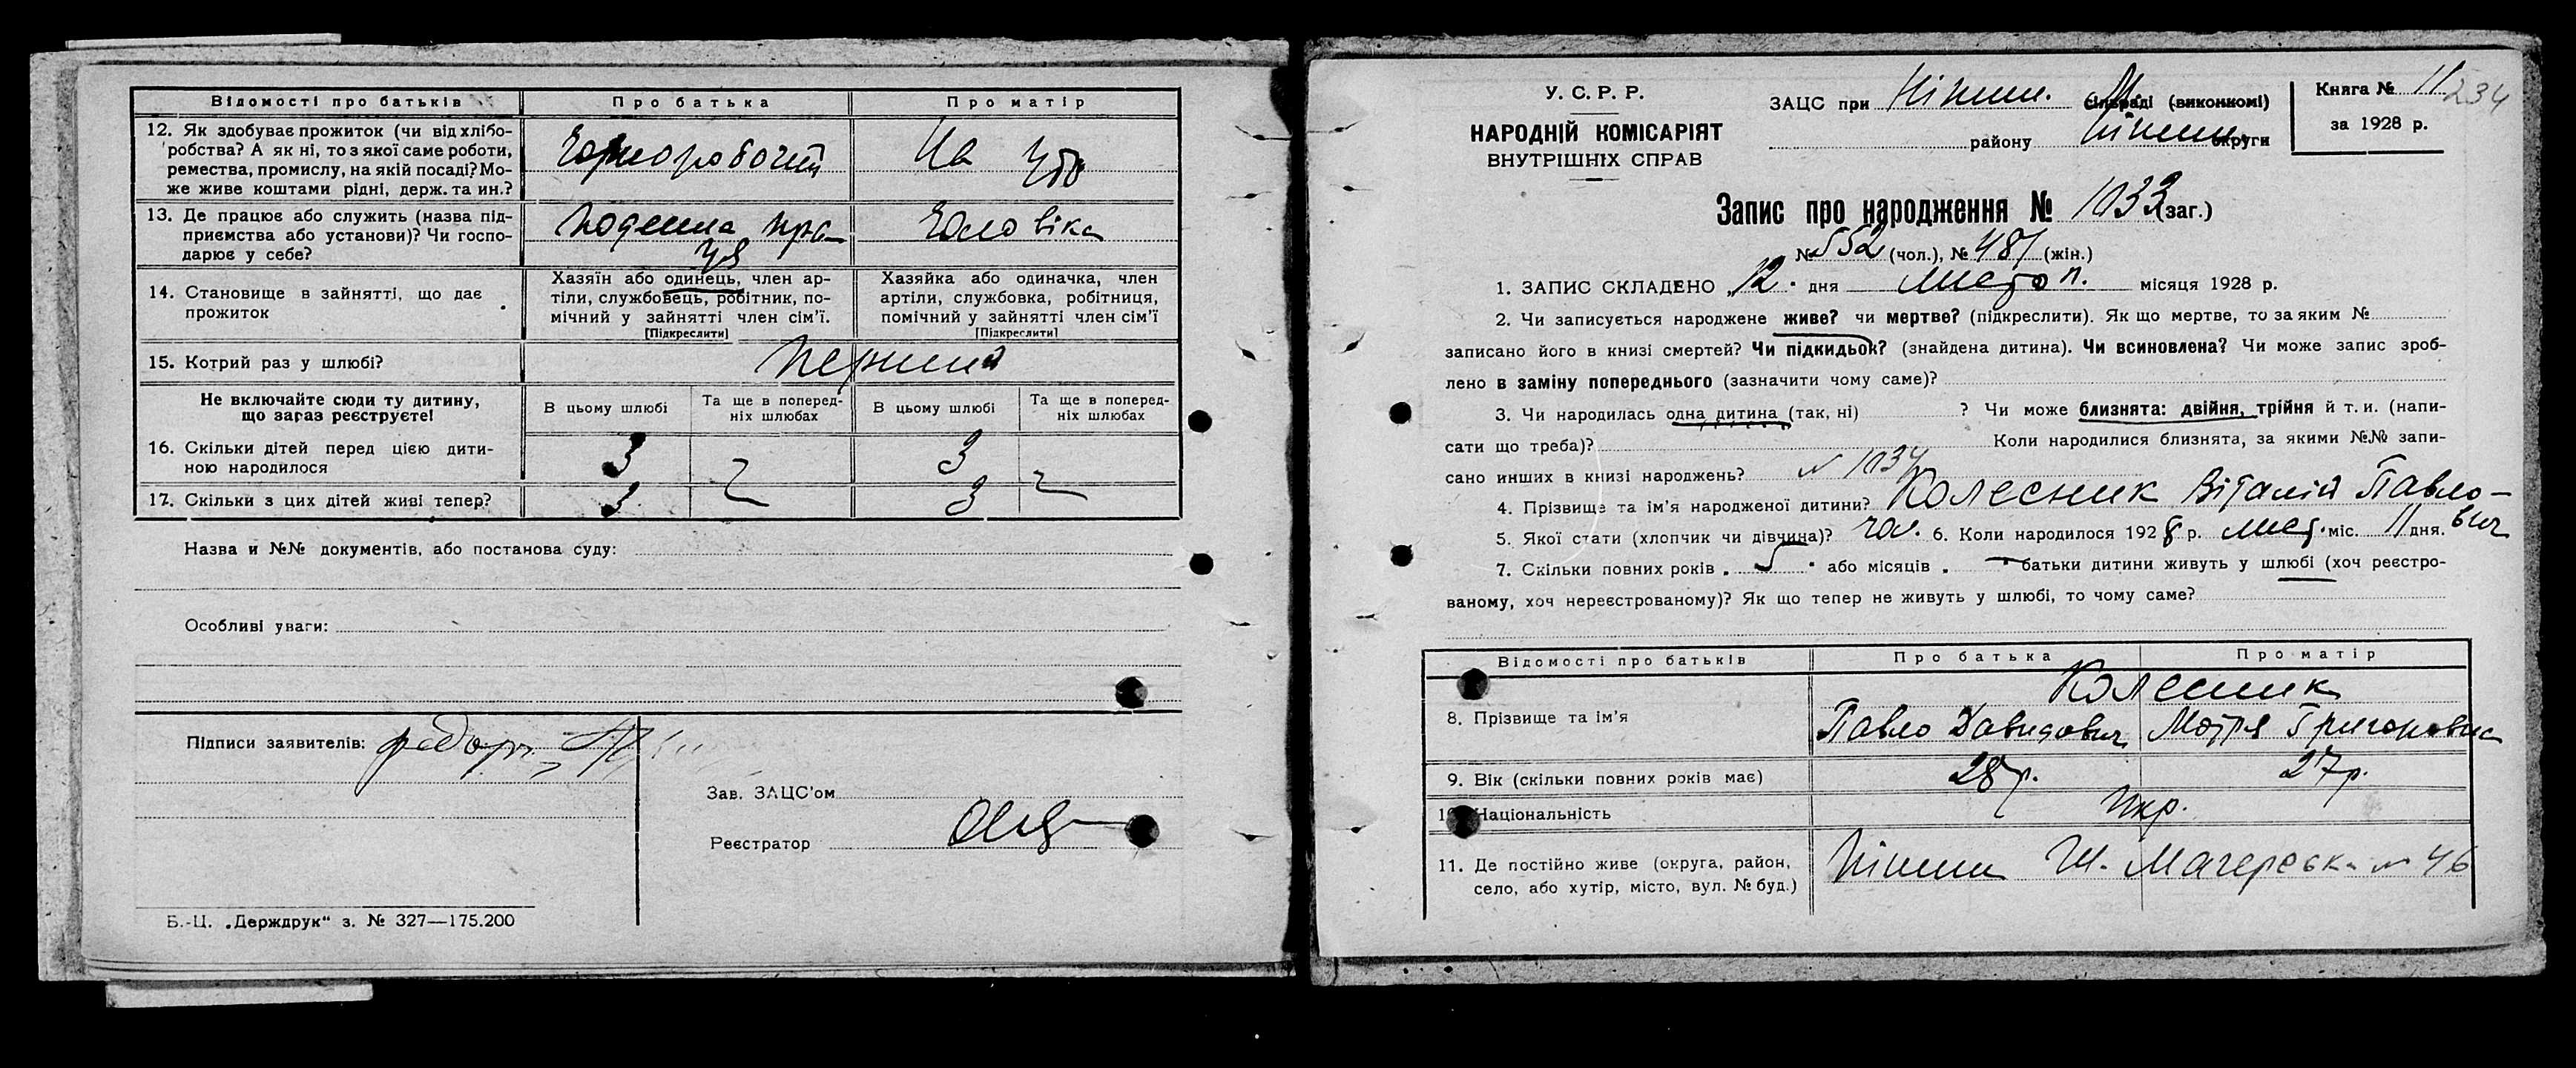 Відомості про батьків
Про батька
Про матір
12. Як здобуває прожиток (чи від хлібо-
робства? А як ні, то з якої саме роботи,
ремества, промислу, на якій посаді? Мо-
же живе коштами рідні, держ. та ин.?
Чорноробочий
На
13. Де працює або служить (назва під-
приємства або установи)? Чи госпо-
дарює у себе?
Поденна пра-
ця
чоловіка
14. Становище в зайнятті, що дає
прожиток
Хазяїн або одинець, член ар-
тіли, службовець, робітник, по-
мічний у зайнятті член сім’ї.
[Підкреслити]
Хазяйка або одиначка, член
артіли, службовка, робітниця,
помічний у зайнятті член сім’ї
[Підкреслити]
15. Котрий раз у шлюбі?
Не включайте сюди ту дитину,
що зараз реєструєте!
В цьому шлюбі
Та ще в поперед-
ніх шлюбах
В цьому шлюбі
Та ще в поперед-
ніх шлюбах
16. Скільки дітей перед цією дити-
ною народилося
3
3
17. Скільки з цих дітей живі тепер?
3
3
Назва и №№ документів, або постанова суду:
Особливі уваги:
Підписи заявителів:
Зав. ЗАЦС’ом
Реєстратор
Б.-Ц. „Держдрук“ з. № 327—175.200
У. С. Р. Р.
НАРОДНІЙ КОМІСАРІЯТ
ВНУТРІШНІХ СПРАВ
ЗАЦС при Ніжин. М. сільраді (виконкомі)
району Ніжин. округи
Книга № 11
234
за 1928 р.
Запис про народження № 1033 (заг.)
№ 552 (чол.), № 481 (жін.)
1. ЗАПИС СКЛАДЕНО 12. дня листоп. місяця 1928 р.
2. Чи записується народжене живе? чи мертве? (підкреслити). Як що мертве, то за яким №
записано його в книзі смертей? Чи підкидьок? (знайдена дитина). Чи всиновлена? Чи може запис зроб-
лено в заміну попереднього (зазначити чому саме)?
3. Чи народилась одна дитина (так, ні) ? Чи може близнята: двійня, трійня й т. и. (напи-
сати що треба)? Коли народилися близнята, за якими №№ запи-
сано инших в книзі народжень? № 1034
4. Прізвище та ім’я народженої дитини? Колесник Віталій Павло-
вич
5. Якої стати (хлопчик чи дівчина)? чол. 6. Коли народилося 1928 р. лист. міс. 11 дня.
7. Скільки повних років 5 або місяців - батьки дитини живуть у шлюбі (хоч реєстро-
ваному, хоч нереєстрованому)? Як що тепер не живуть у шлюбі, то чому саме?
Відомості про батьків
Про батька
Про матір
8. Прізвище та ім’я
Колесник
Павло Давидович
Мотря Григоровна
9. Вік (скільки повних років має)
28 р.
27 р.
10. Національність
Укр.
11. Де постійно живе (округа, район,
село, або хутір, місто, вул. № буд.)
Ніжин Ш. Магерська № 46